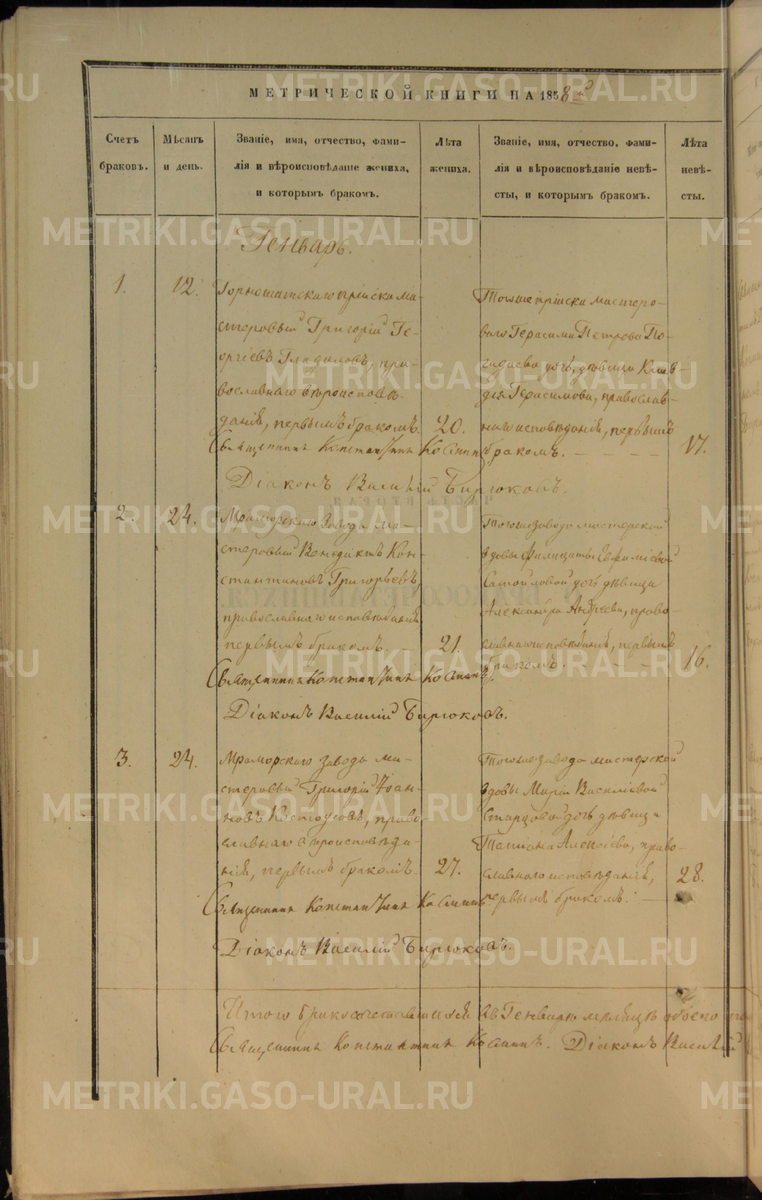 МЕТРИЧЕСКОЙ КНИГИ НА 1858й
Счетъ браковъ.
Мѣсяцъ и день.
Званіе, имя, отчество, фами-
лія и вѣроисповѣданіе жениха,
и которымъ бракомъ.
Лѣта жениха.
Званіе, имя, отчество, фами-
лія и вѣроисповѣданіе невѣ-
сты, и которымъ бракомъ.
Лѣта невѣ-
сты.
Генварь.
1.
12.
Горнощитскаго пріиска ма-
стеровый Григорій Ге-
оргіевъ Гладиловъ, пра-
вославнаго вѣроисповѣ-
данія, первымъ бракомъ.
20.
Тогоже пріиска мастеро-
ваго Герасима Петрова По-
дочь, дѣвица Клав-
дія Герасимова, православ-
наго исповѣданія, первымъ
бракомъ.
17.
Священникъ Константинъ
Діаконъ Василій Бирюковъ.
2.
24.
Мраморскаго завода ма-
стеровый Венедиктъ Кон-
стантиновъ Григорьевъ,
православнаго исповѣданія,
первымъ бракомъ.
21.
Тогоже завода мастерской
вдовы Фелицаты Ефимовой
Самойловой дочь дѣвица
Александра Андреева, право-
славнаго исповѣданія, первымъ
бракомъ.
16.
Священникъ Константинъ
Діаконъ Василій Бирюковъ.
3.
24.
Мраморскаго завода ма-
стеровый Григорій Іоан-
новъ Костоусовъ, право-
славнаго вѣроисповѣда-
нія, первымъ бракомъ.
27.
Тогоже завода мастерской
вдовы Маріи Василіевой
Старцовой дочь дѣвица
Татіана Алексіева, право-
славнаго исповѣданія,
первымъ бракомъ.
28.
Священникъ Константинъ
Діаконъ Василій Бирюковъ.
Итого бракосочетавшихся въ Генварѣ мѣсяцѣ обоего
Священникъ Константинъ Діаконъ Василій
METRIKI.GASO-URAL.RU